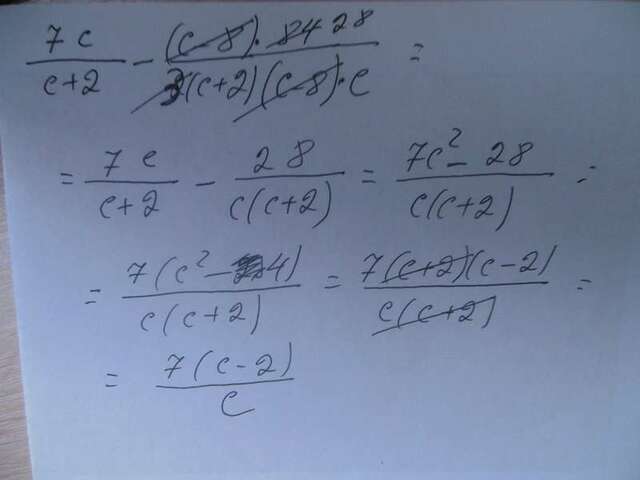 7c/(c+2) - (c-8)·84 28/3(c+2)(c-8)·c =
= 7c/(c+2) - 28/c(c+2) = 7c² - 28/c(c+2) =
= 7(c² - 4)/c(c+2) = 7(c+2)(c-2)/c(c+2) =
= 7(c-2)/c